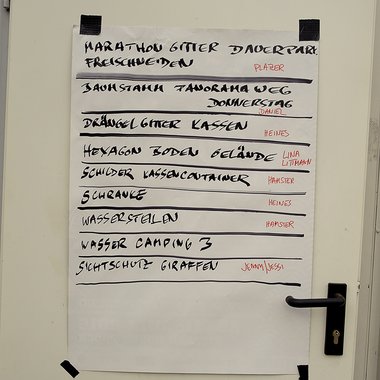 MARATHON GITTER DAUERPARK
FREISCHNEIDEN PLAZER
BAUMSTAMM PANORAMA WEG
DONNERSTAG
DANIEL
DRÄNGELGITTER KASSEN
HEINES
HEXAGON BODEN GELÄNDE LINA
LITTMANN
SCHILDER KASSENCONTAINER
HAMSTER
SCHRANKE
HEINES
WASSERSTELLEN
HAMSTER
WASSER CAMPING 3
SICHTSCHUTZ GIRAFFEN JENNY/JESSI